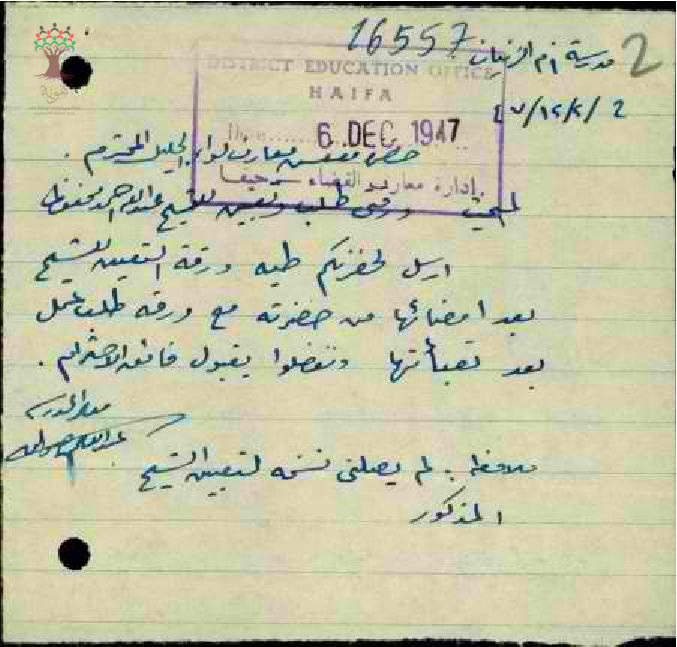 16557
2
مدرسة ام الزينات
٢/١٢/٤٧
DISTRICT EDUCATION OFFICE
HAIFA
Date 6 DEC 1947
ادارة معارف القضاء - حيفا
حضرة مفتش معارف لواء الجليل المحترم .
المبحث ورقتي طلب وتعيين للشيخ عبدالله احمد محفوظ
ارسل لحضرتكم طيه ورقة التعيين للشيخ
بعد امضائها من حضرته مع ورقة طلب عمل
بعد تعبأتها وتفضلوا بقبول فائق الاحترام .
معلم المدرسة
ملاحظة :. لم يصلني نسخه لتعيين الشيخ
المذكور